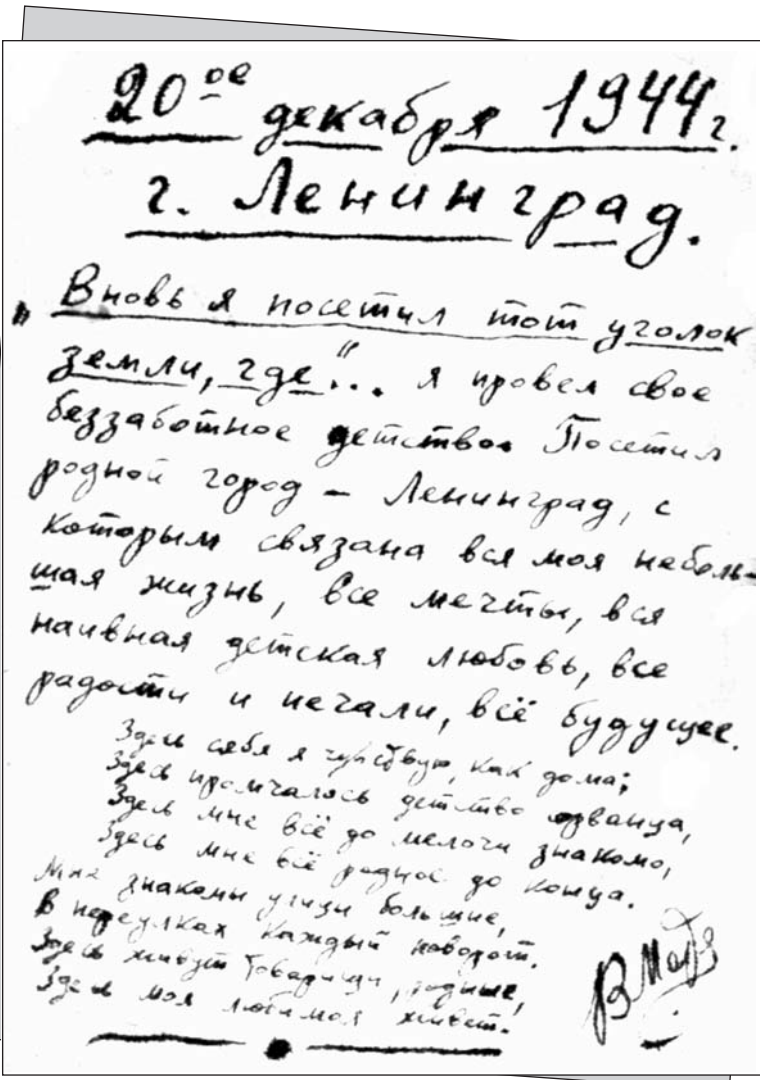 20ое декабря 1944г.
г. Ленинград.
„Вновь я посетил тот уголок
земли, где“... я провел свое
беззаботное детство. Посетил
родной город – Ленинград, с
которым связана вся моя неболь-
шая жизнь, все мечты, вся
наивная детская любовь, все
радости и печали, всё будущее.
Здесь себя я чувствую, как дома;
Здесь промчалось детство озванца,
Здесь мне всё до мелочи знакомо,
Здесь мне всё родное до конца.
Мне знакомы улицы большие,
В переулках каждый поворот.
Здесь живут товарищи, родные,
Здесь моя любимая живет.